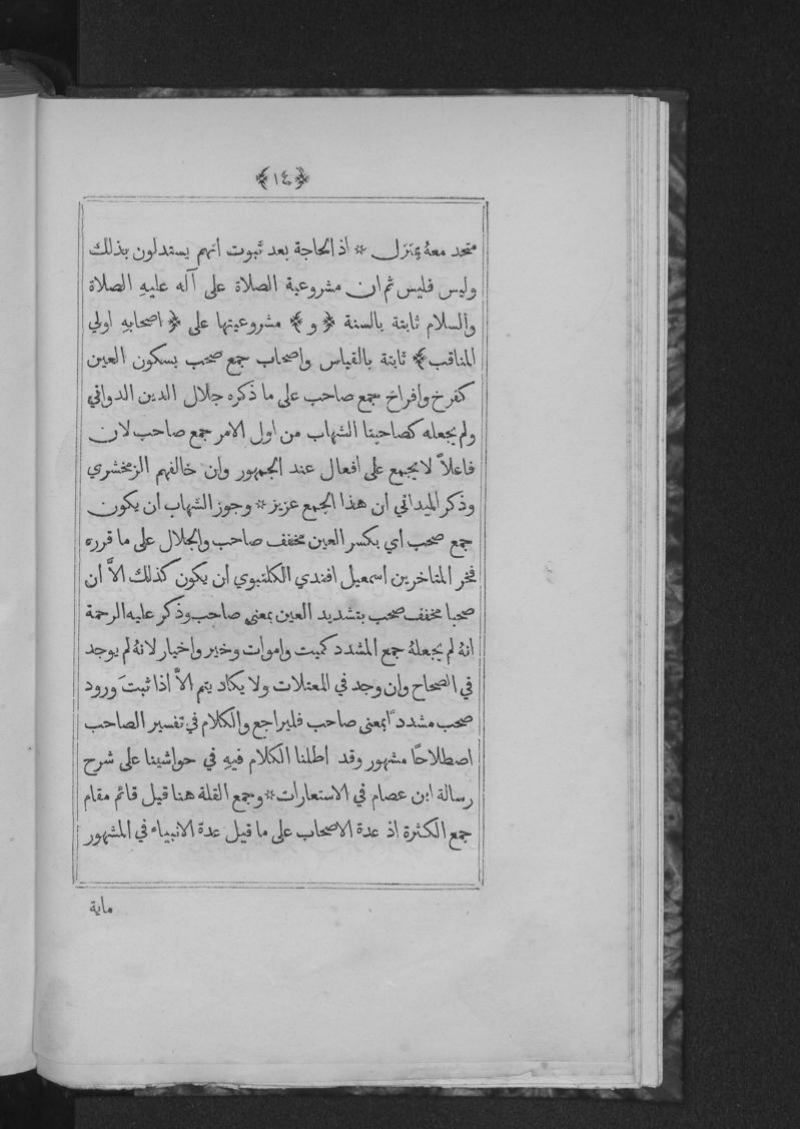 ﴿١٤﴾
متحد معهُ بمنزل * اذ الحاجة بعد ثبوت انهم يستدلون بذلك
وليس فليس ثم ان مشروعية الصلاة على آله عليهِ الصلاة
والسلام ثابتة بالسنة ﴿ و ﴾ مشروعيتها على ﴿ اصحابهِ اولي
المناقب ﴾ ثابتة بالقياس واصحاب جمع صحب بسكون العين
كفرخ وافراخ جمع صاحب على ما ذكره جلال الدين الدواني
ولم يجعله كصاحبنا الشهاب من اول الامر جمع صاحب لان
فاعلاً لا يجمع على افعال عند الجمهور وان خالفهم الزمخشري
وذكر الميداني ان هذا الجمع عزيز * وجوز الشهاب ان يكون
جمع صحب أي بكسر العين مخفف صاحب والجلال على ما قرره
فخر المتاخرين اسمعيل افندي الكلنبوي ان يكون كذلك الاَّ ان
صحبا مخفف صحب بتشديد العين بمعنى صاحب وذكر عليه الرحمة
انهُ لم يجعلهُ جمع المشدد كميت واموات وخير واخيار لانهُ لم يوجد
في الصحاح وان وجد في المعتلات ولا يكاد يتم الاَّ اذا ثبتَ ورود
صحب مشدداً بمعنى صاحب فليراجع والكلام في تفسير الصاحب
اصطلاحًا مشهور وقد اطلنا الكلام فيهِ في حواشينا على شرح
رسالة ابن عصام في الاستعارات * وجمع القلة هنا قيل قائم مقام
جمع الكثرة اذ عدة الاصحاب على ما قيل عدة الانبياء في المشهور
ماية